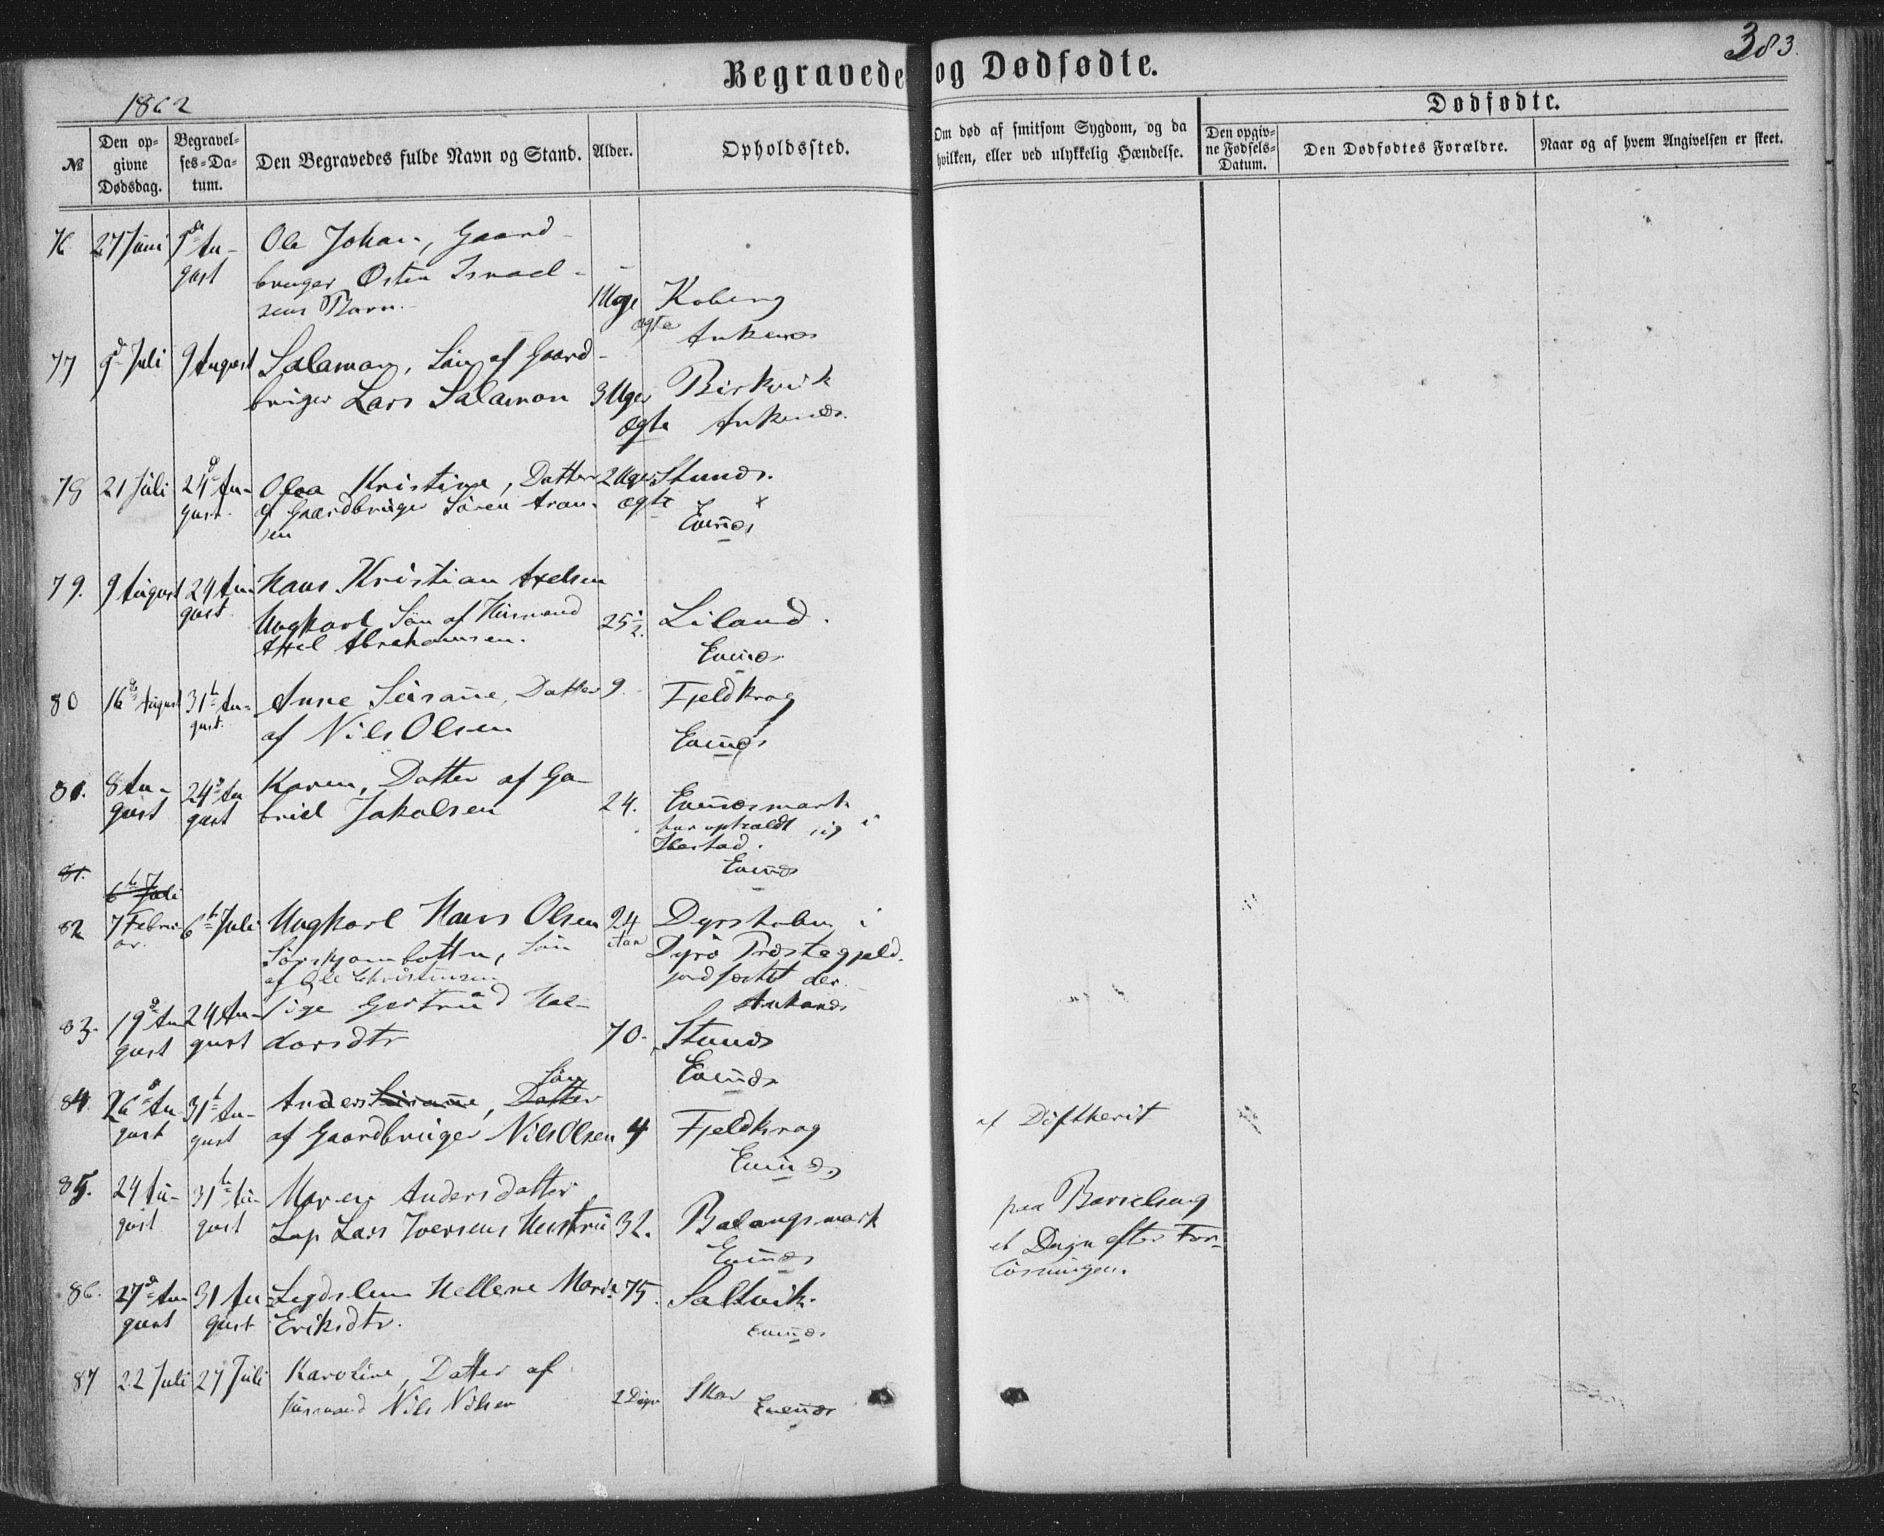 Begravede og Dødfødte.
383.
1862
Dødfødte.
№
Den opgivne Dødsdag.
Begravelses-Datum.
Den Begravedes fulde Navn og Stand.
Alder.
Opholdssted.
Om død af smitsom Sygdom, og da
hvilken, eller ved ulykkelig Hændelse.
Den opgivne Fødsels-Datum.
Den Dødfødtes Forældre.
Naar og af hvem Angivelsen er skeet.
27 Juni 9de Au-
gust
Ole Johan, Gaard-
bruger Østen Israel-
sens Barn.
1 Uge Koberg
ægte Ankenæs
77 9d Juli 9 August Salamon, Søn af Gaard-
bruger Lars Salamon 3 Uger Birkvik
ægte Ankenæs.
78 21 Juli 24d Au-
gust.
Kristine, Datter 2 Uger Stunæs.
af Gaardbruger Sören Aron-
sen
ægte Evenæs
79. 9 August 24 Au-
gust.
Hans Kristian Axelsen
Ungkarl Søn af Husmand 25½ Liland.
Axel Abrahamsen.
Evenæs
80 16de August 31te Au-
gust.
Anne Susanne, Datter 9. Fjeldkrog
af Nils Olsen
Evenæs
81. 8 Au-
gust
24d Au
gust
Karen, Datter af Ga-
briel Jakobsen 24. Evenæsmark
har opholdt sig i
Ibestad.
Evenæs
81.
6te Juli
82 7 Febru
ar.
6te Juli Ungkarl Hans Olsen 24 i
Aar
Sørskjombotten, Søn
af Ole Christensen
Dyrø Præstegjeld.
jordfæstet der.
Ankenæs
83. 19d Au
gust
24 Au-
gust
Pige Gertrud Hal-
dorsdtr 70. Stunæs
Evenæs
84. 26d Au
gust
31te Au-
gust
Anders Susanne, Datter
Søn
af Gaardbruger Nils Olsen 4 Fjeldkrog
Evenæs
af Diftherit
85. 24 Au-
gust
31te Au-
gust
Maren Andersdatter
Lap Lars Iversens Hustru 32. Balangsmark
Evenæs
paa Barselseng
et Døgn efter For-
løsningen.
86. 27d Au-
gust
31 Au-
gust
Legdslem Hellene Marie 75. Saltvik.
Eriksdtr.
Evenæs
87 22 Juli 27 Juli Karoline, Datter af
Husmand Nils Nilsen 2 Dage Skar
Evenæs